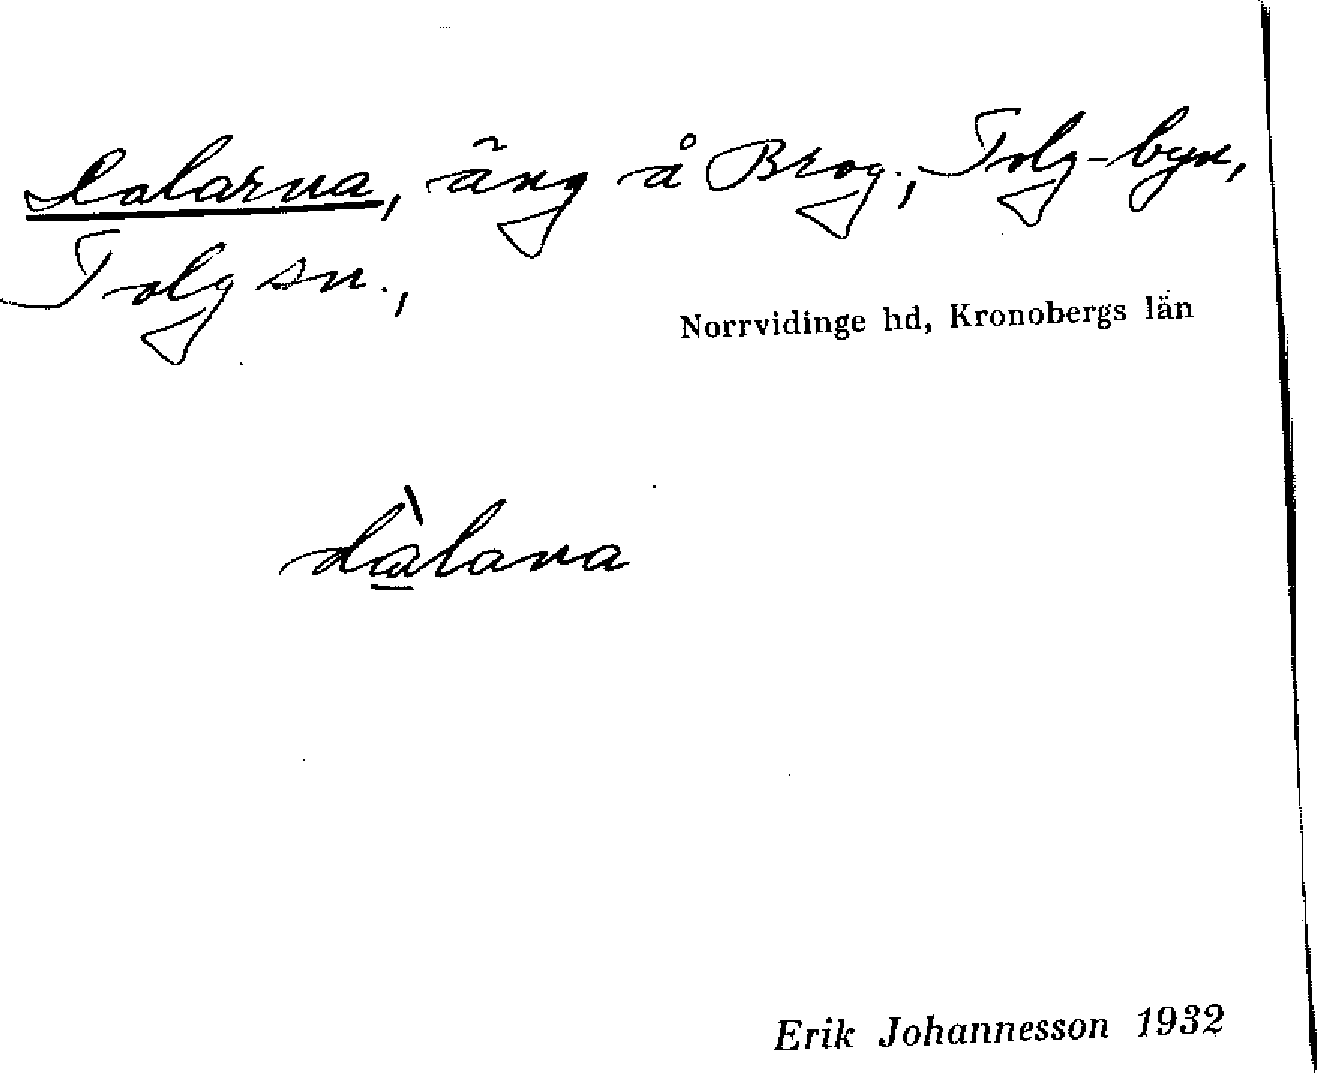 Dalarna, äng å Brog., Tolg-byn,
Tolg sn.,
Norrvidinge hd, Kronobergs län
dàlana
Erik Johannesson 1932